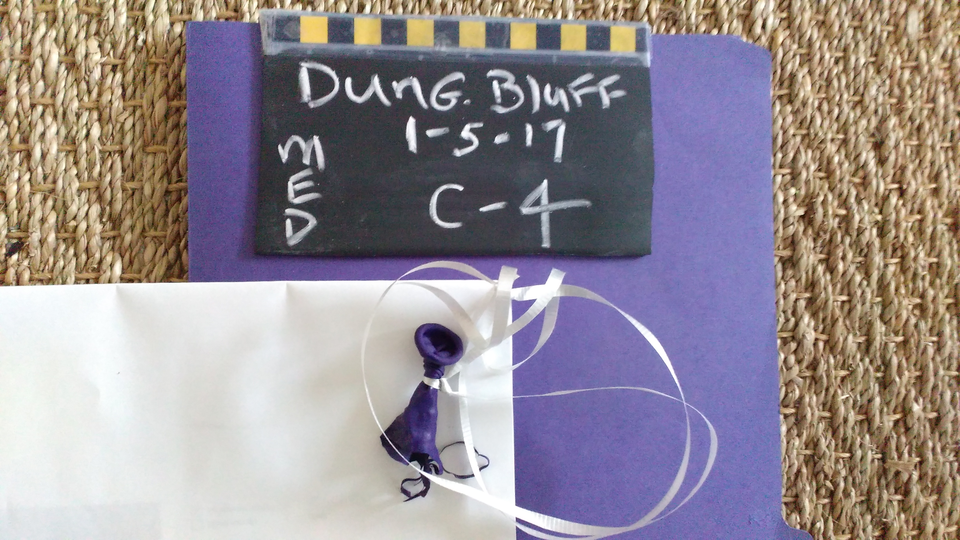 DUNG. BLUFF
1-5-17
MED
C-4